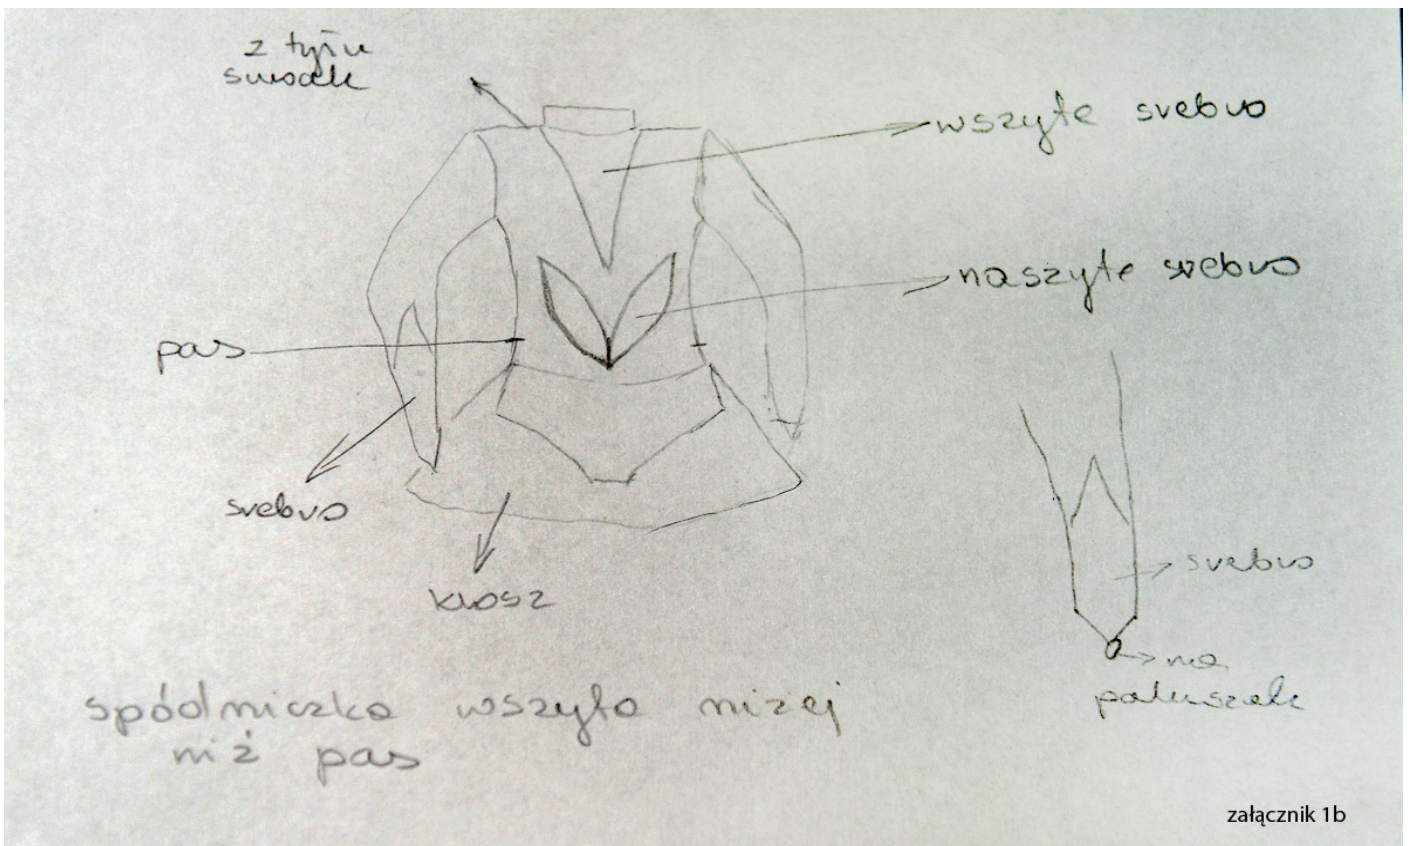 z tyłu
suwak
wszyte srebro
naszyte srebro
pas
srebro
klosz
srebro
na
paluszek
spódniczka wszyta niżej
niż pas
załącznik 1b